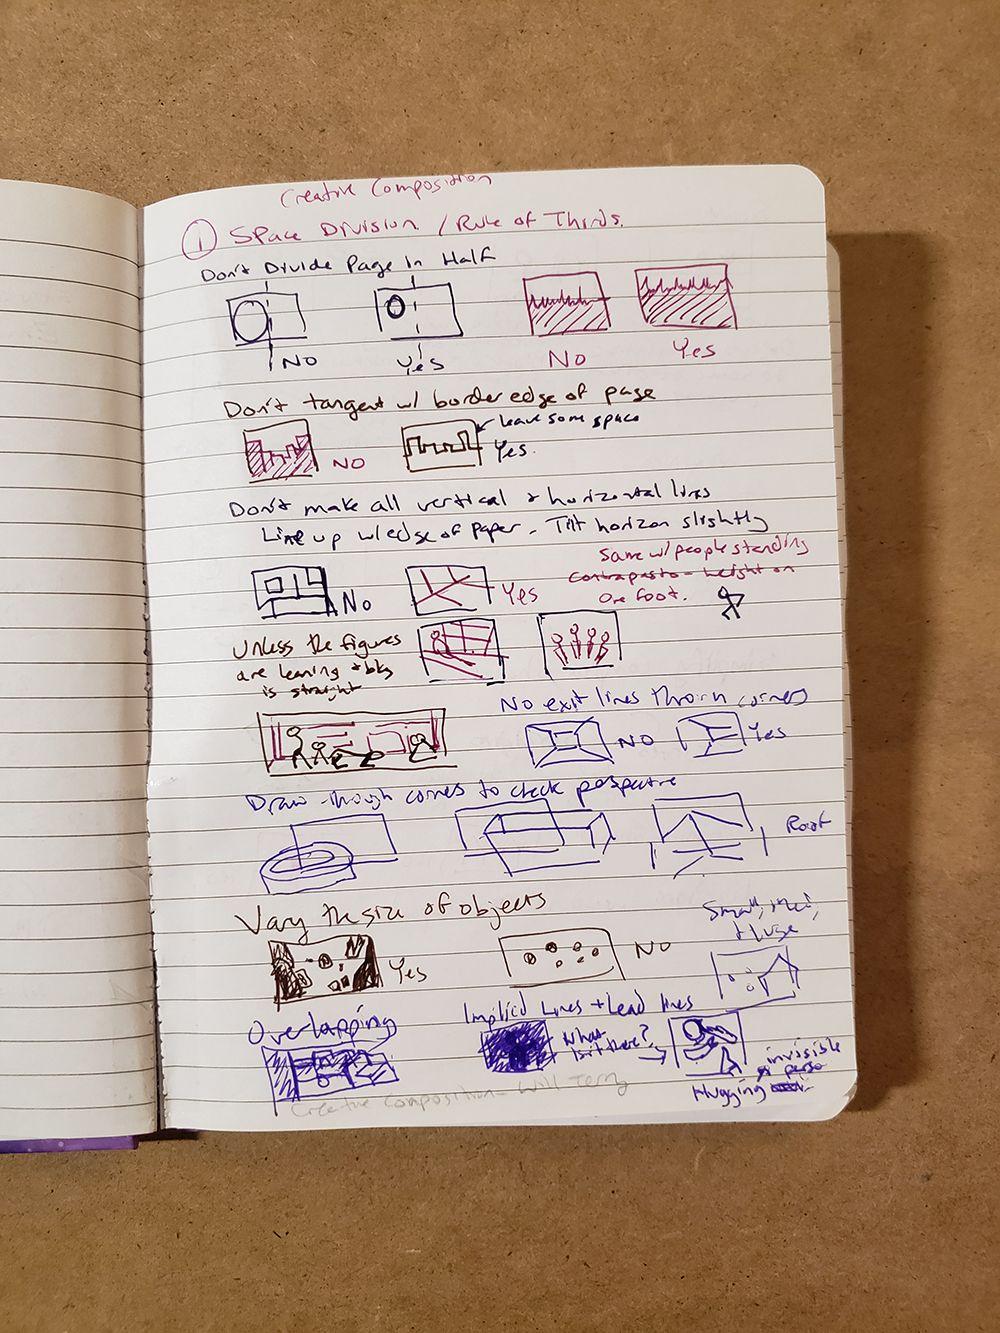 Creative Composition
① Space Division / Rule of Thirds.
Don't Divide Page in Half
NO
Yes
No
Yes
Don't tangent w/ border edge of page
leave some space
NO
Yes.
Don't make all vertical + horizontal lines
Line up w/ edge of paper - Tilt horizon slightly
No
Yes
Same w/ people standing
contrapasto - weight on
one foot.
Unless the figures
are leaning + bkg
is straight
No exit lines through corners
NO
Yes
Draw through corners to check perspective
Roof
Vary the size of objects
Yes
NO
Small, Med,
+ Huge
Overlapping
Implied Lines + Lead lines
What
isn't there?
Hugging
invisible
person
Creative Composition - Will Terry